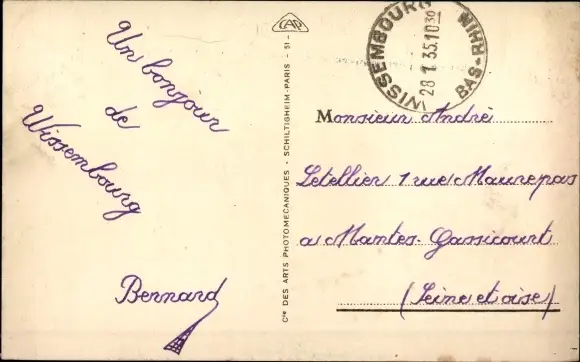 Un bonjour
de
Wissembourg
Bernard
CAP
Cie DES ARTS PHOTOMECANIQUES - SCHILTIGHEIM-PARIS - 51 -
WISSEMBOURG
BAS-RHIN
28 1 35.10 30
Monsieur André
Letellier 1 rue Maurepas
a Mantes-Gassicourt
(Seine et oise)